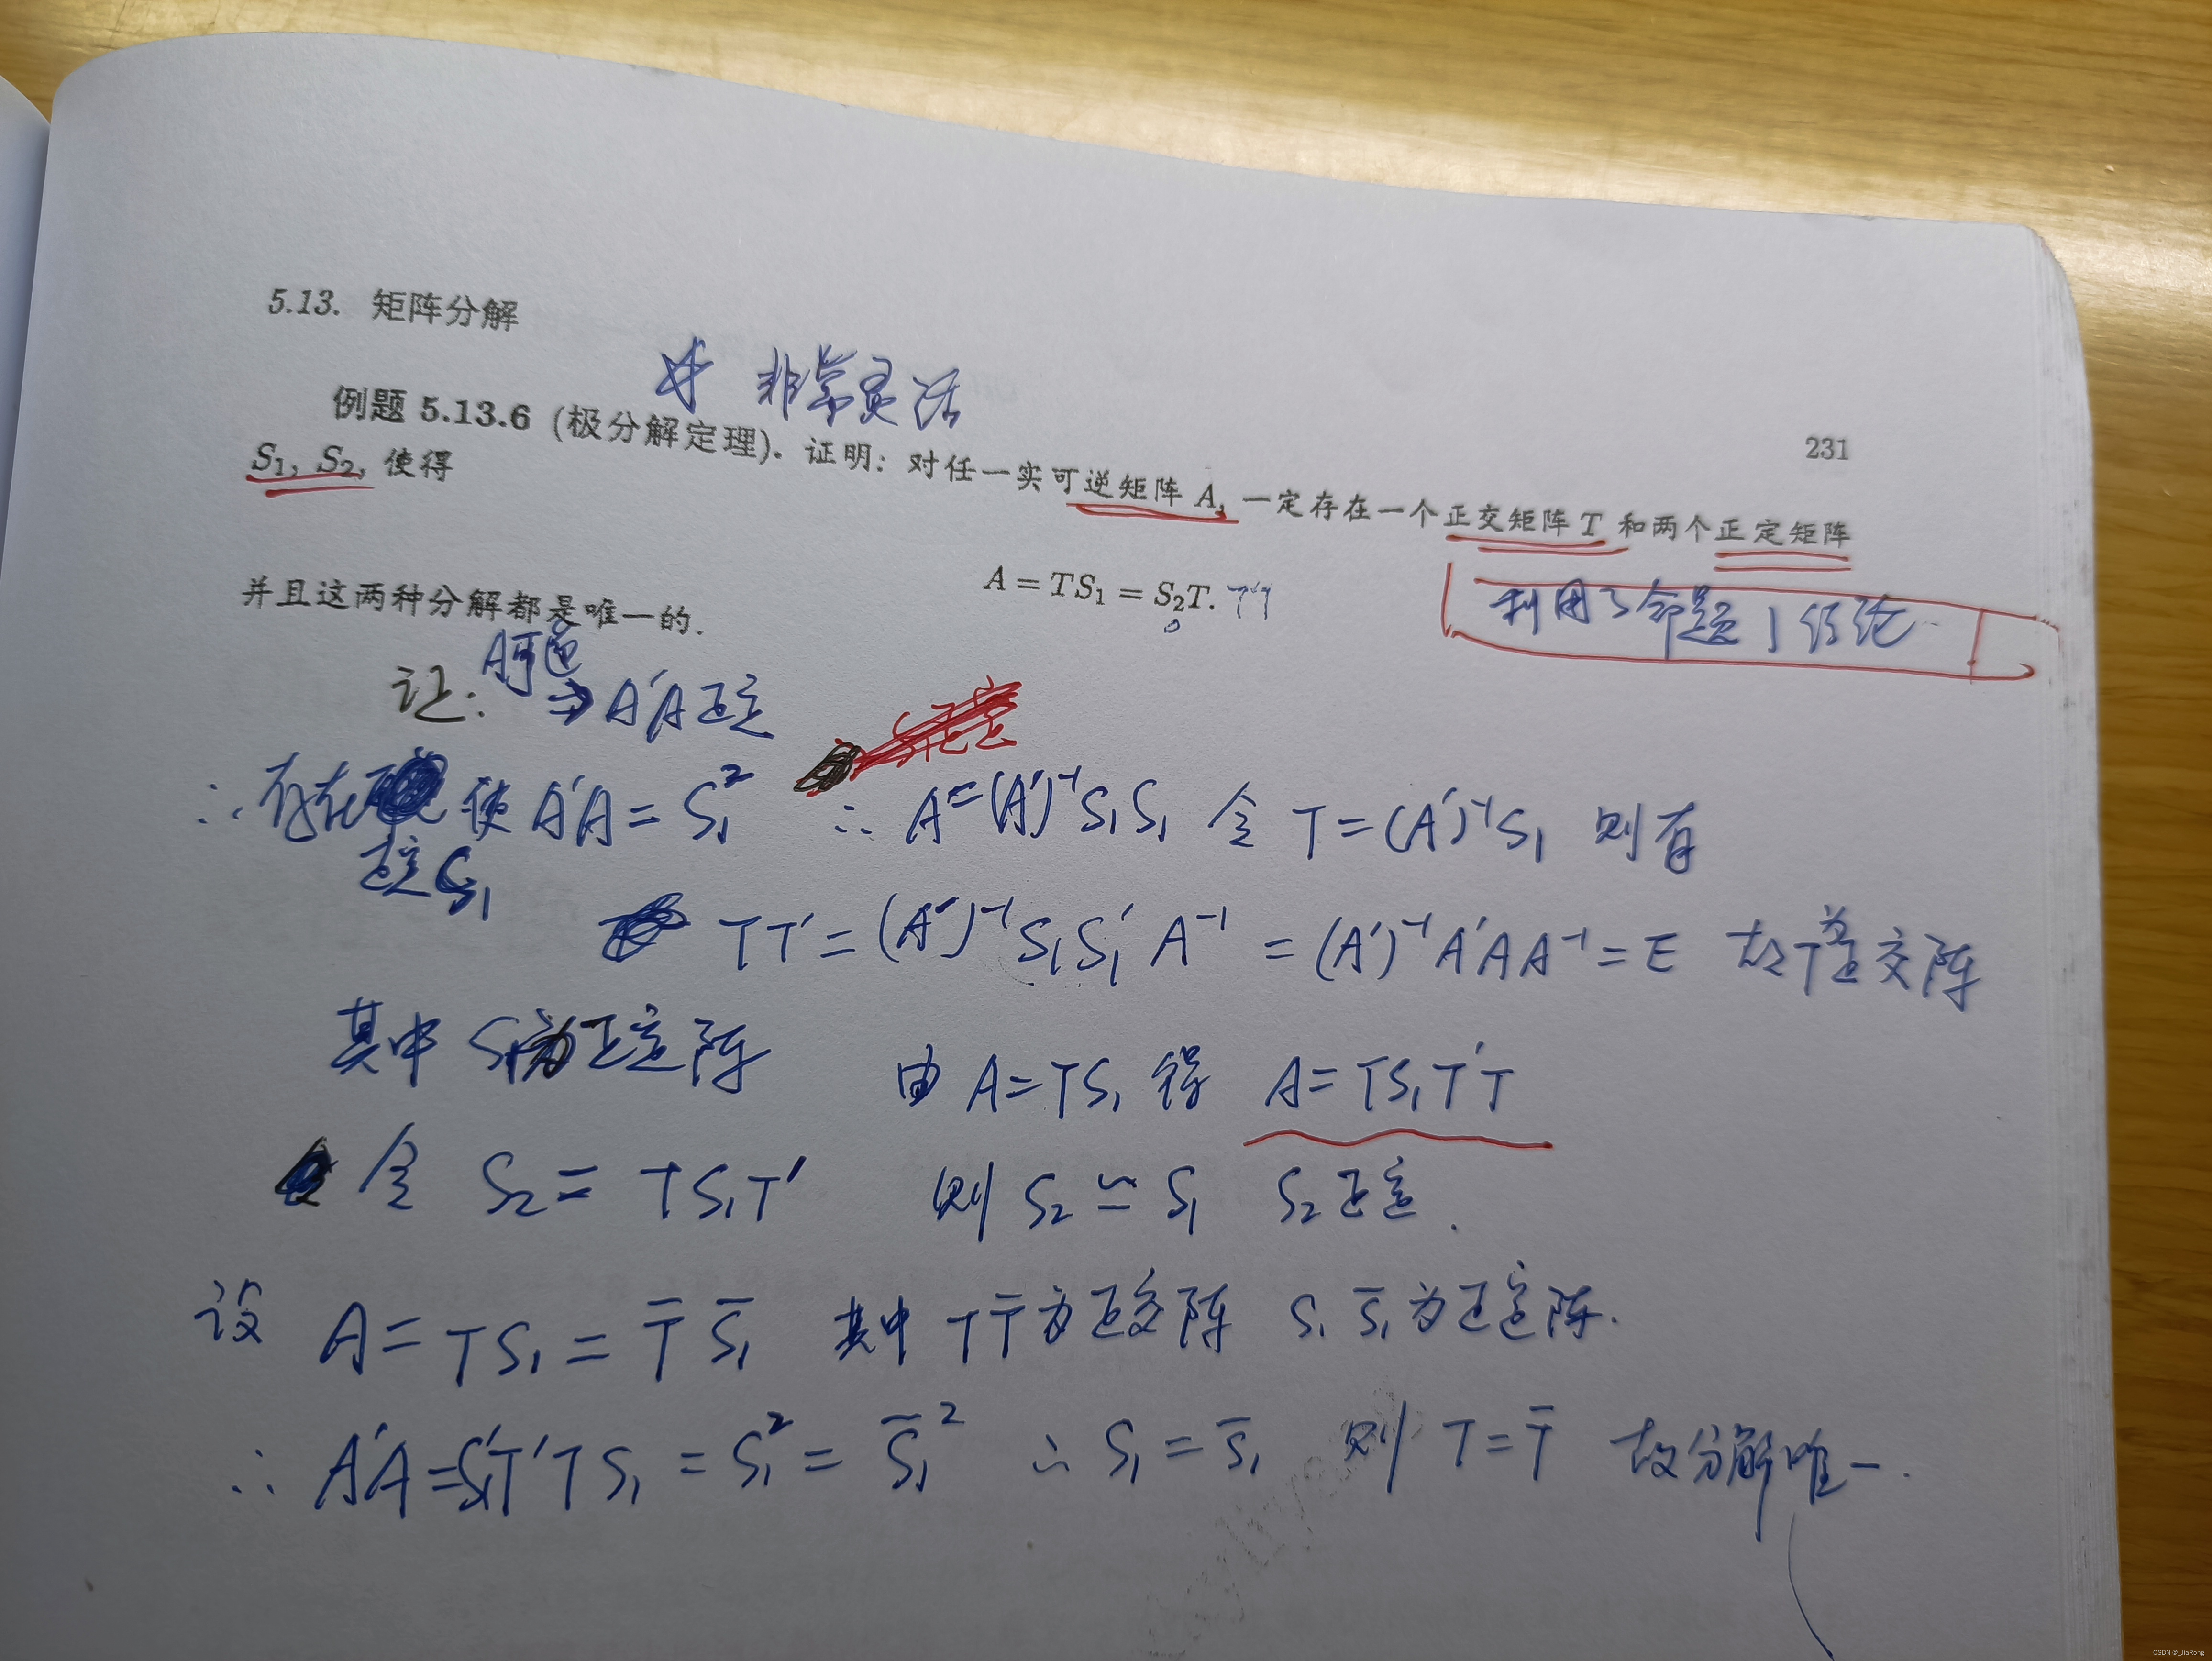 5.13. 矩阵分解
231
☆ 非常灵活
例题 5.13.6 (极分解定理). 证明: 对任一实可逆矩阵 A, 一定存在一个正交矩阵 T 和两个正定矩阵
S₁, S₂, 使得
A = TS₁ = S₂T.
利用了命题1结论
并且这两种分解都是唯一的.
证: A可逆 ⇒ A'A正定
∴ 存在正定S₁ 使 A'A = S₁² ∴ A=(A')⁻¹S₁S₁ 令 T=(A')⁻¹S₁ 则有
TT' = (A')⁻¹S₁S₁'A⁻¹ = (A')⁻¹A'AA⁻¹ = E 故T为正交阵
其中 S₁为正定阵 由 A=TS₁ 得 A=TS₁T'T
令 S₂ = TS₁T' 则 S₂ ≃ S₁ S₂正定.
设 A = TS₁ = T̄ S̄₁ 其中 T T̄ 为正交阵 S₁ S̄₁ 为正定阵.
∴ A'A = S₁'T'TS₁ = S₁² = S̄₁² ∴ S₁ = S̄₁ 则 T = T̄ 故分解唯一.
CSDN @_JiaRong